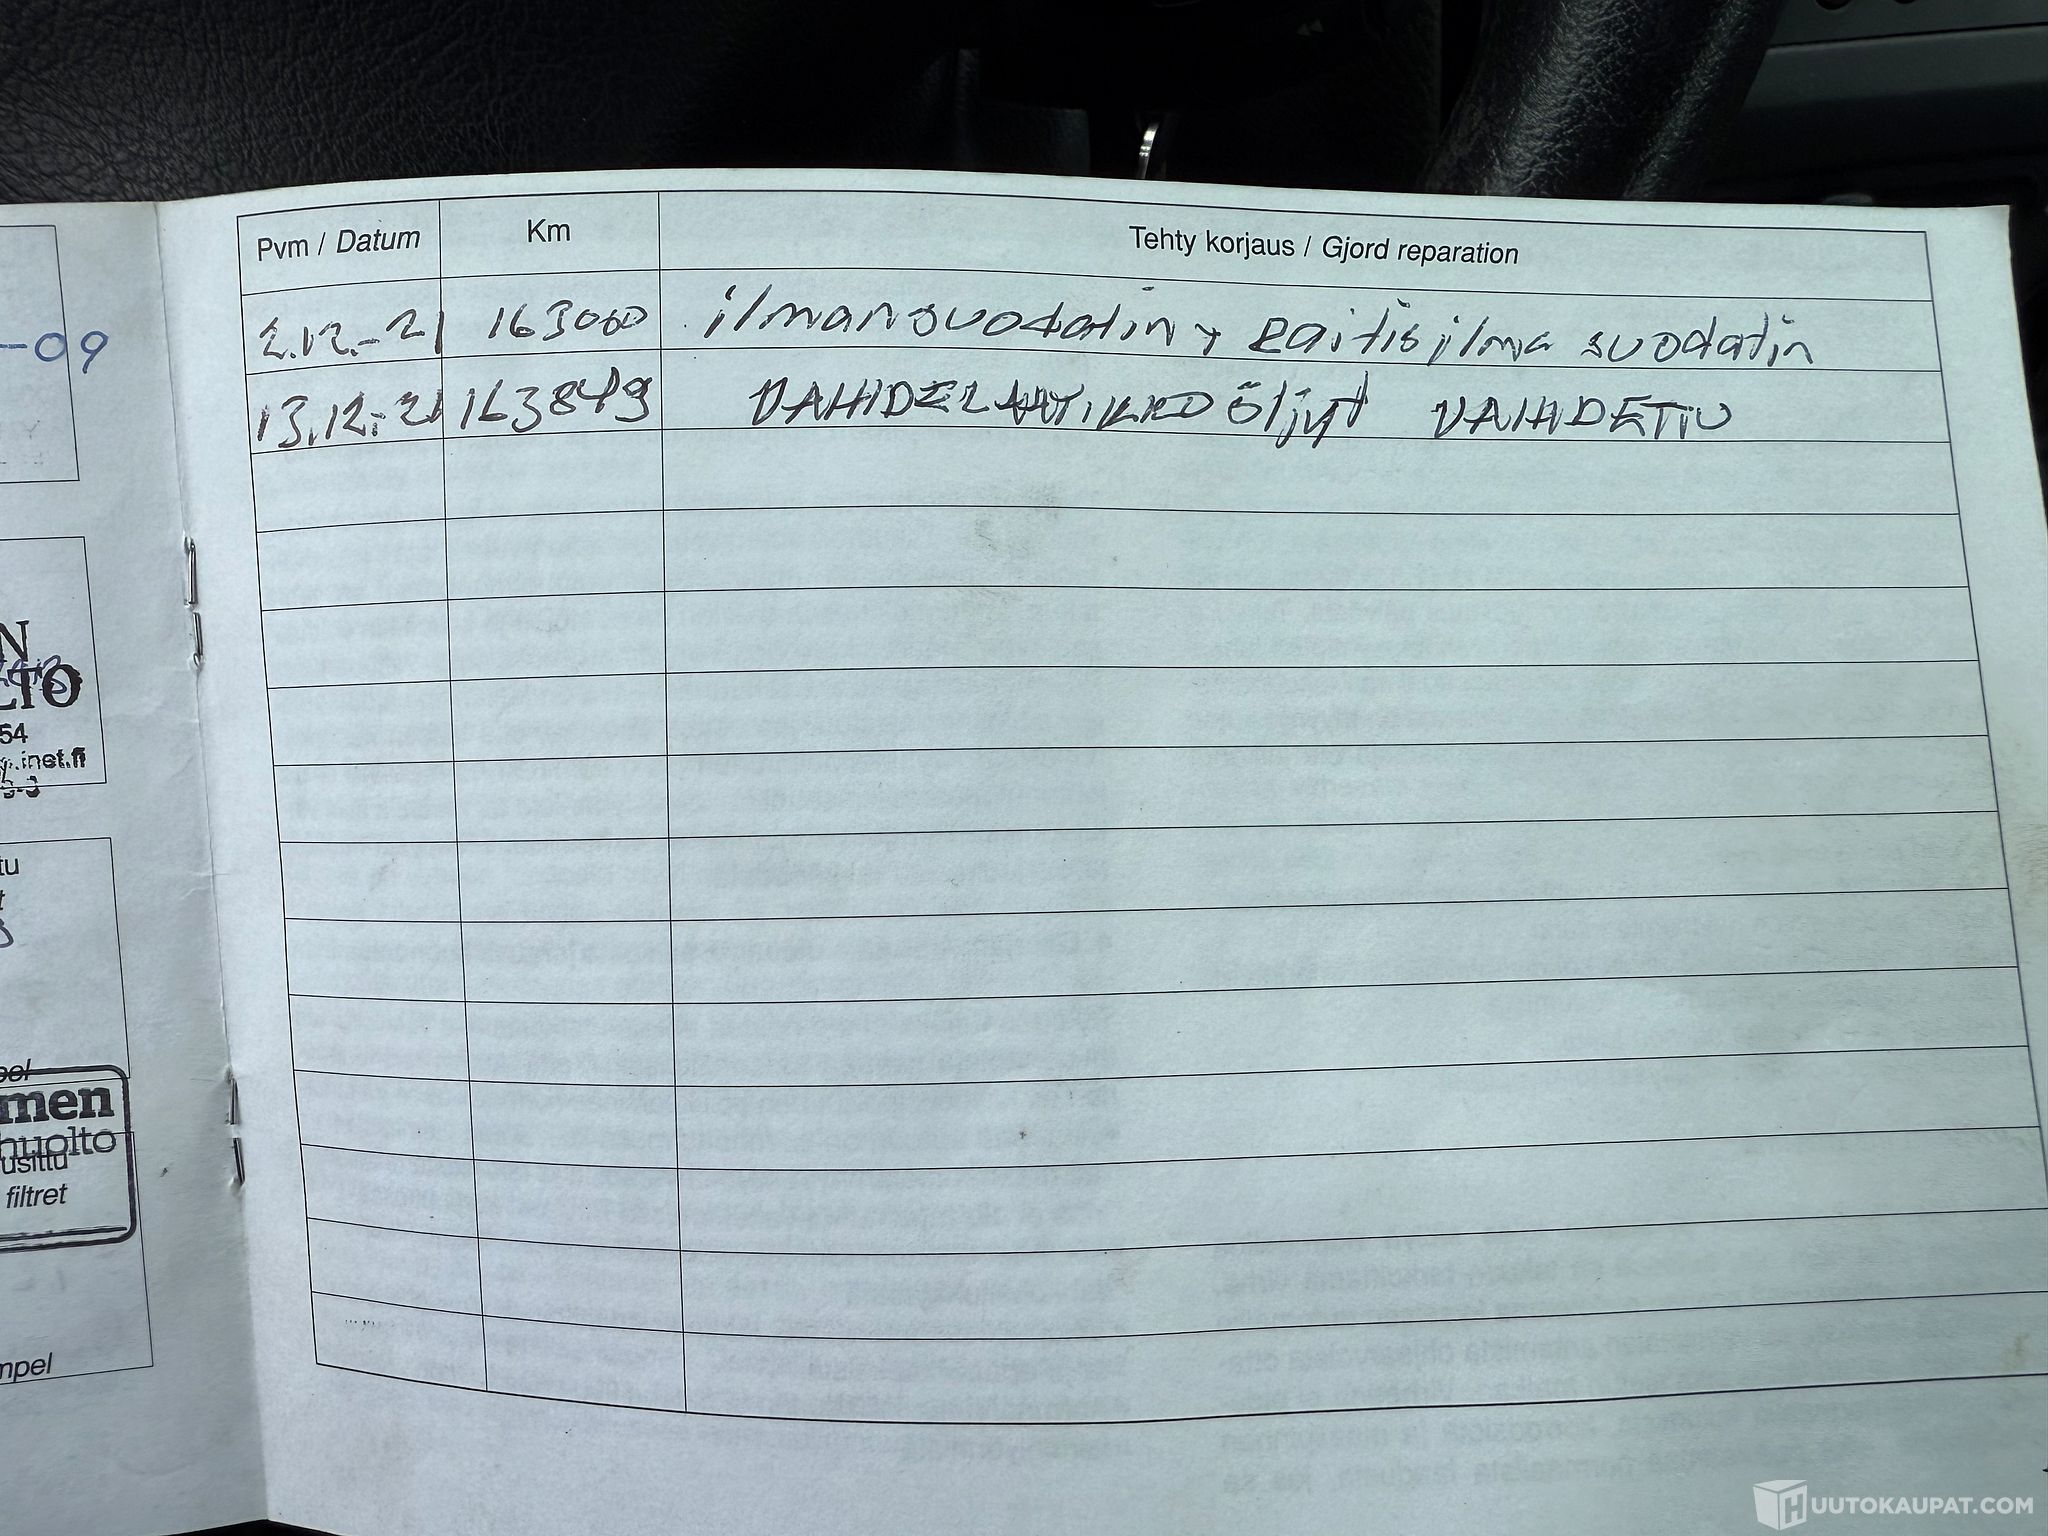 Pvm / Datum Km Tehty korjaus / Gjord reparation
2.12.-21 163000 ilmansuodatin + raitisilma suodatin
13.12.-21 163849 VAIHDELAATIKKO öljyt VAIHDETTU
-09
N
LTO
54
.inet.fi
tu
t
pel
men
huolto
usittu
filtret
mpel
HUUTOKAUPAT.COM